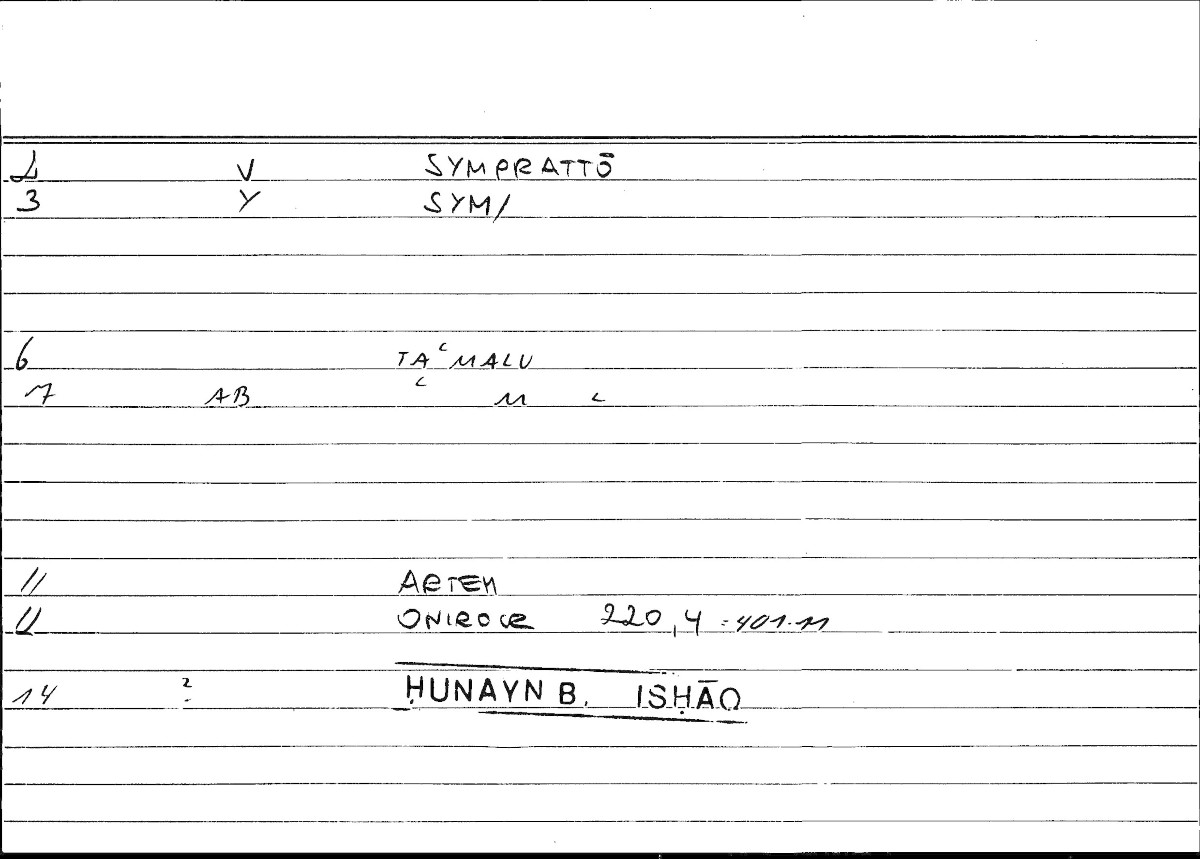 2 V SYMPRATTŌ
3 Y SYM/
6 TAʿMALU
7 AB ʿ M L
11 ARTEM
12 ONIROCR 220,4 : 401.11
14 ? ḤUNAYN B. ISḤĀQ